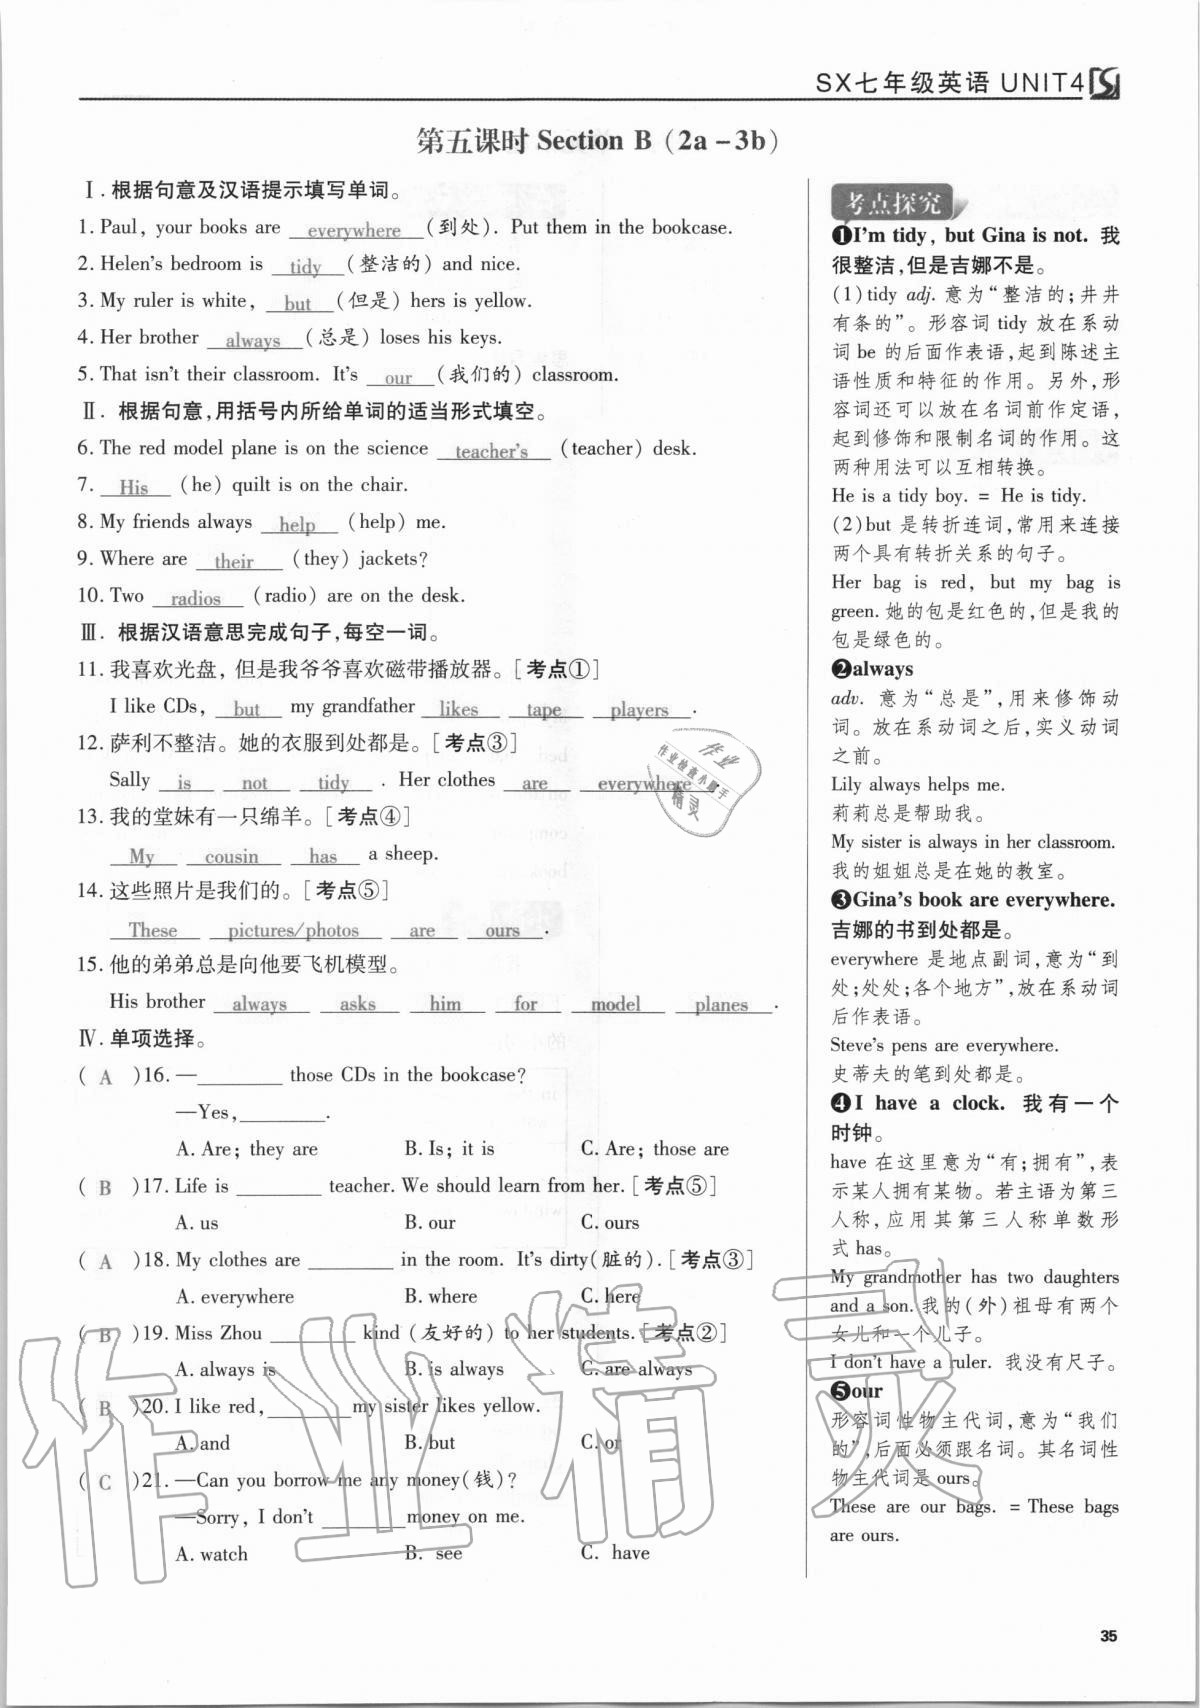 SX七年级英语 UNIT4
第五课时 Section B (2a－3b)
Ⅰ. 根据句意及汉语提示填写单词。
1. Paul, your books are everywhere (到处). Put them in the bookcase.
2. Helen's bedroom is tidy (整洁的) and nice.
3. My ruler is white, but (但是) hers is yellow.
4. Her brother always (总是) loses his keys.
5. That isn't their classroom. It's our (我们的) classroom.
Ⅱ. 根据句意,用括号内所给单词的适当形式填空。
6. The red model plane is on the science teacher's (teacher) desk.
7. His (he) quilt is on the chair.
8. My friends always help (help) me.
9. Where are their (they) jackets?
10. Two radios (radio) are on the desk.
Ⅲ. 根据汉语意思完成句子,每空一词。
11. 我喜欢光盘, 但是我爷爷喜欢磁带播放器。[考点①]
I like CDs, but my grandfather likes tape players .
12. 萨利不整洁。她的衣服到处都是。[考点③]
Sally is not tidy . Her clothes are everywhere .
13. 我的堂妹有一只绵羊。[考点④]
My cousin has a sheep.
14. 这些照片是我们的。[考点⑤]
These pictures/photos are ours .
15. 他的弟弟总是向他要飞机模型。
His brother always asks him for model planes .
Ⅳ. 单项选择。
( A )16. —________ those CDs in the bookcase?
—Yes,________.
A. Are; they are B. Is; it is C. Are; those are
( B )17. Life is ________ teacher. We should learn from her. [考点⑤]
A. us B. our C. ours
( A )18. My clothes are ________ in the room. It's dirty(脏的). [考点③]
A. everywhere B. where C. here
( B )19. Miss Zhou ________ kind (友好的) to her students. [考点②]
A. always is B. is always C. are always
( B )20. I like red,________my sister likes yellow.
A. and B. but C. or
( C )21. —Can you borrow me any money(钱)?
—Sorry, I don't ________money on me.
A. watch B. see C. have
考点探究
❶I'm tidy, but Gina is not. 我
很整洁,但是吉娜不是。
(1)tidy adj. 意为“整洁的;井井
有条的”。形容词 tidy 放在系动
词be 的后面作表语,起到陈述主
语性质和特征的作用。另外,形
容词还可以放在名词前作定语,
起到修饰和限制名词的作用。这
两种用法可以互相转换。
He is a tidy boy. = He is tidy.
(2)but 是转折连词,常用来连接
两个具有转折关系的句子。
Her bag is red, but my bag is
green. 她的包是红色的,但是我的
包是绿色的。
❷always
adv. 意为“总是”,用来修饰动
词。放在系动词之后,实义动词
之前。
Lily always helps me.
莉莉总是帮助我。
My sister is always in her classroom.
我的姐姐总是在她的教室。
❸Gina's book are everywhere.
吉娜的书到处都是。
everywhere 是地点副词,意为“到
处;处处;各个地方”,放在系动词
后作表语。
Steve's pens are everywhere.
史蒂夫的笔到处都是。
❹I have a clock. 我有一个
时钟。
have 在这里意为“有;拥有”,表
示某人拥有某物。若主语为第三
人称,应用其第三人称单数形
式 has。
My grandmother has two daughters
and a son. 我的(外)祖母有两个
女儿和一个儿子。
I don't have a ruler. 我没有尺子。
❺our
形容词性物主代词,意为“我们
的”,后面必须跟名词。其名词性
物主代词是 ours。
These are our bags. = These bags
are ours.
35
作业
作业检查小助手
精灵
作业精灵